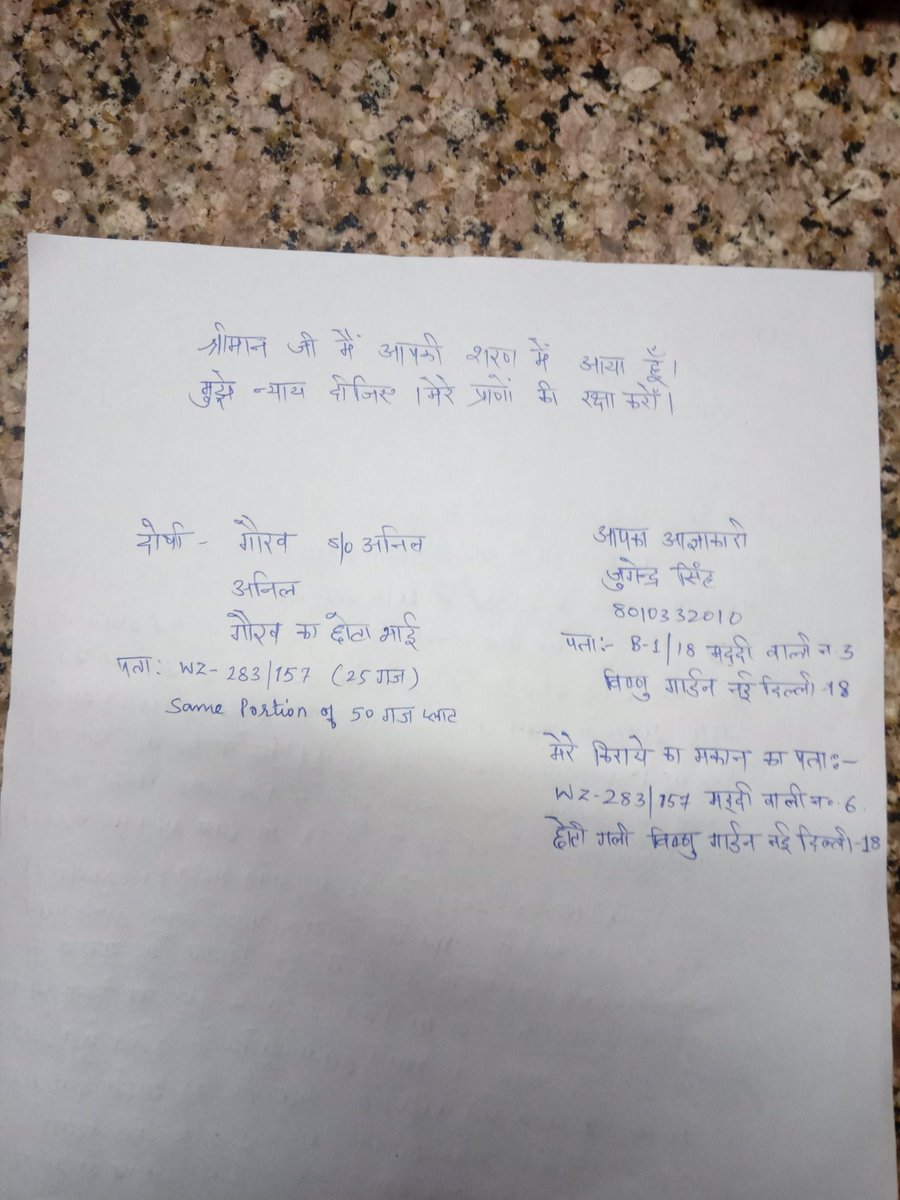 श्रीमान जी मैं आपकी शरण में आया हूँ।
मुझे न्याय दीजिए । मेरे प्राणों की रक्षा करों।
दोषी - गौरव s/o अनिल
अनिल
गौरव का छोटा भाई
पता: WZ- 283/157 (25 गज)
Same Portion of 50 गज प्लाट
आपका आज्ञाकारी
जुगेन्द्र सिंह
8010332010
पता:- B-1/18 मद्दी वाली न 3
विष्णु गार्डन नई दिल्ली-18
मेरे किराये का मकान का पता:-
WZ-283/157 मद्दी वाली न॰ 6
छोटी गली विष्णु गार्डन नई दिल्ली-18